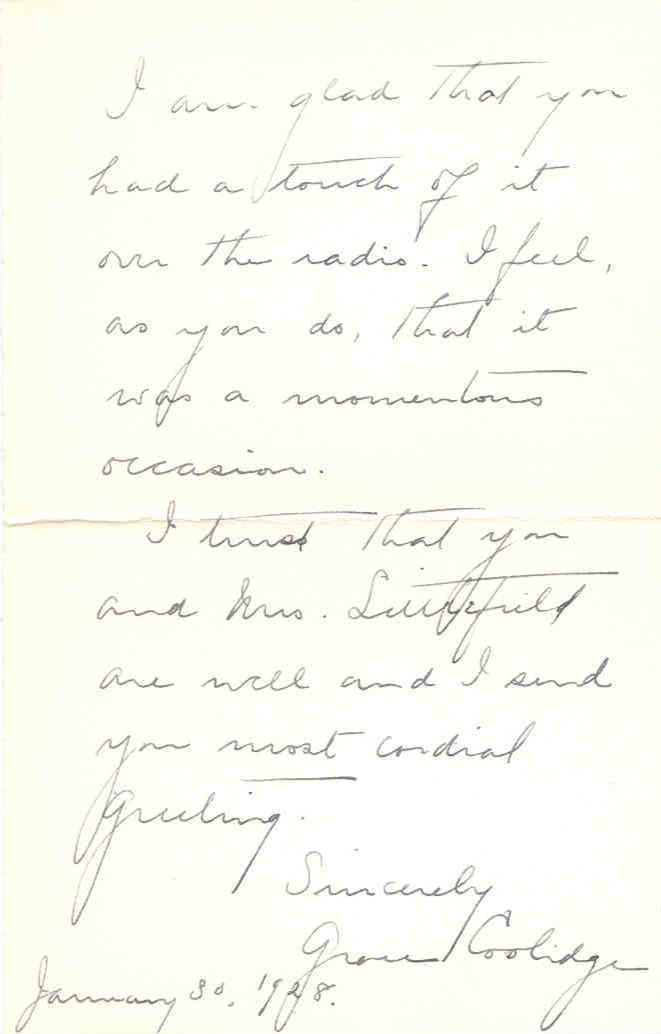 I am glad that you
had a touch of it
over the radio. I feel,
as you do, that it
was a momentous
occasion.
I trust that you
and Mrs. Littlefield
are well and I send
you most cordial
greeting.
Sincerely
Grace Coolidge
January 30, 1928.